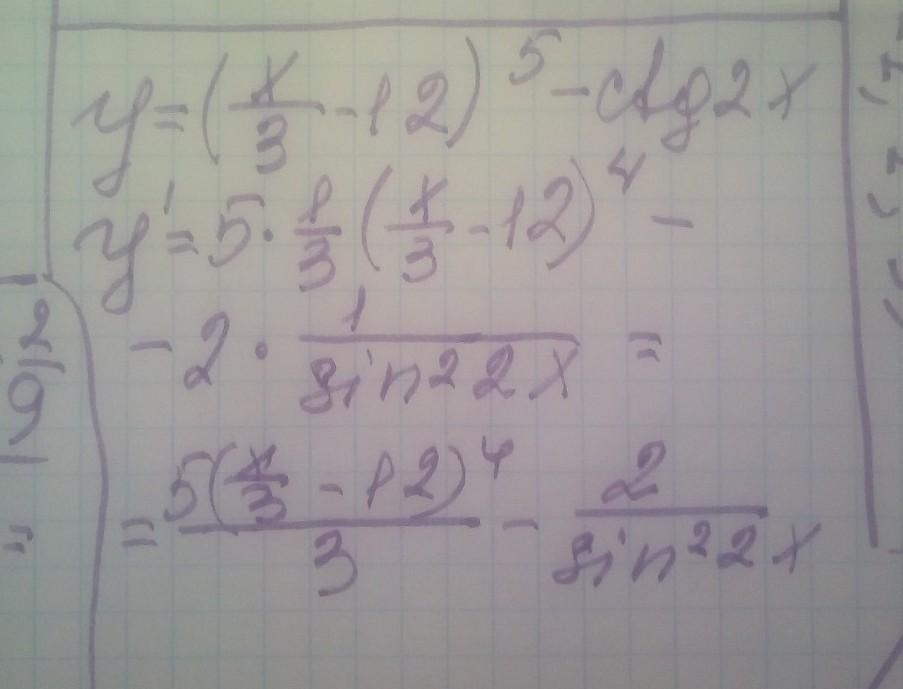 y=(x/3-12)^5-ctg2x
y'=5·1/3(x/3-12)^4-
-2·1/sin²2x=
=5(x/3-12)^4/3-2/sin²2x
2/9
=